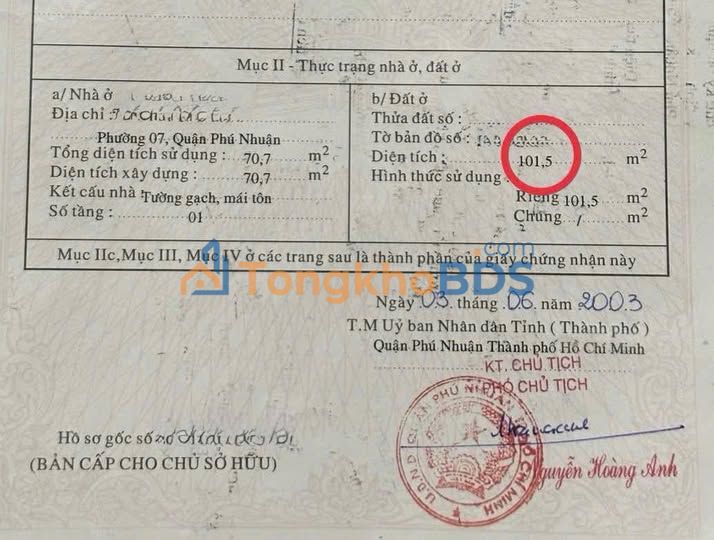 Mục II - Thực trạng nhà ở, đất ở
a/ Nhà ở
Địa chỉ :
Phường 07, Quận Phú Nhuận
Tổng diện tích sử dụng : 70,7 m²
Diện tích xây dựng : 70,7 m²
Kết cấu nhà : Tường gạch, mái tôn
Số tầng : 01
b/ Đất ở
Thửa đất số :
Tờ bản đồ số :
Diện tích : 101,5 m²
Hình thức sử dụng :
Riêng 101,5 m²
Chung / m²
Mục IIc, Mục III, Mục IV ở các trang sau là thành phần của giấy chứng nhận này
TongkhoBDS
.com
Ngày 03. tháng 06. năm 2003
T.M Uỷ ban Nhân dân Tỉnh ( Thành phố )
Quận Phú Nhuận Thành phố Hồ Chí Minh
KT. CHỦ TỊCH
PHÓ CHỦ TỊCH
U.B.N.D QUẬN PHÚ NHUẬN
HỒ CHÍ MINH
Nguyễn Hoàng Anh
Hồ sơ gốc số
(BẢN CẤP CHO CHỦ SỞ HỮU)